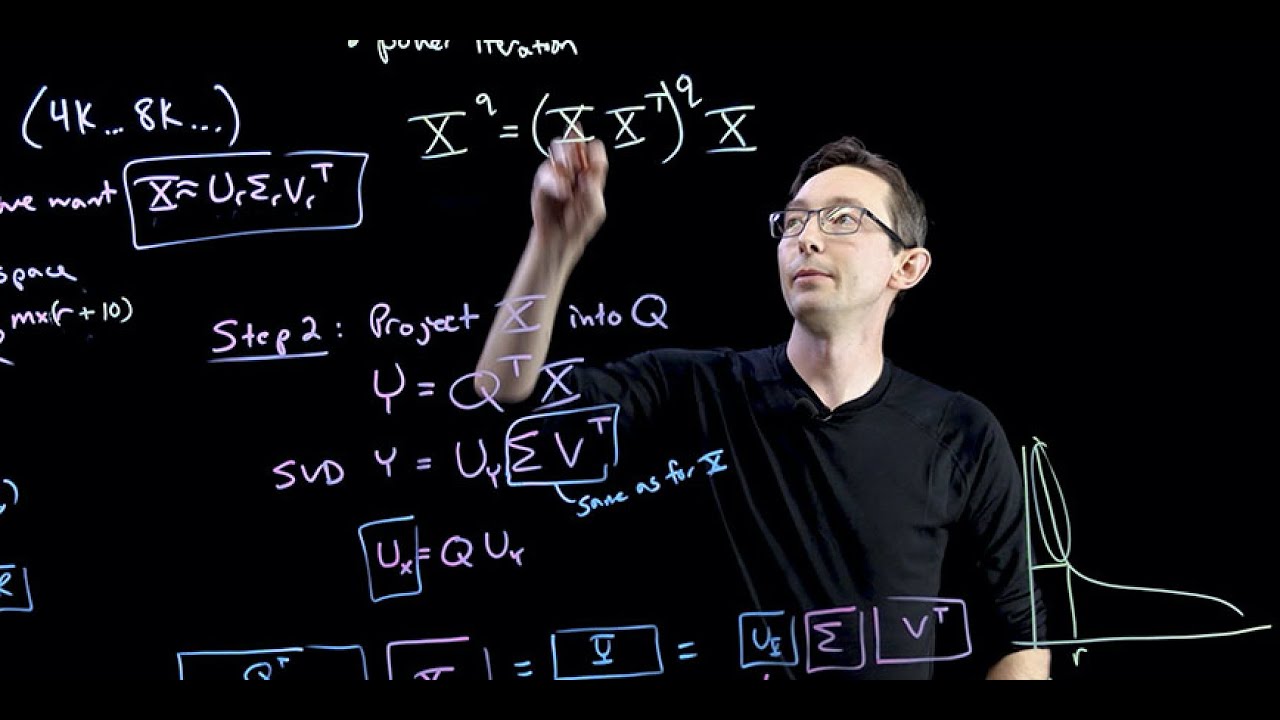 • power iteration
(4K... 8K...)
X^q = (X X^T)^q X
we want X ≈ U_r Σ_r V_r^T
space
m×(r + 10)
Step 2: Project X into Q
Y = Q^T X
SVD Y = U_Y Σ V^T
same as for X
U_X = Q U_Y
R
Q^T X = Y = U_X Σ V^T
r